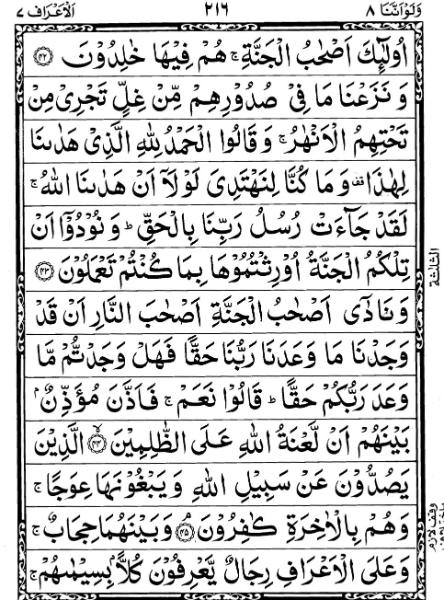 وَلَوْ اَنَّنَا ٨ ٢١٦ اَلْاَعْرَاف ٧
اُولٰٓئِكَ اَصْحٰبُ الْجَنَّةِ ۚ هُمْ فِيْهَا خٰلِدُوْنَ ﴿٤٢﴾
وَ نَزَعْنَا مَا فِىْ صُدُوْرِهِمْ مِّنْ غِلٍّ تَجْرِىْ مِنْ
تَحْتِهِمُ الْاَنْهٰرُ ۚ وَ قَالُوا الْحَمْدُ لِلّٰهِ الَّذِىْ هَدٰىنَا
لِهٰذَا ۟ وَ مَا كُنَّا لِنَهْتَدِىَ لَوْلَاۤ اَنْ هَدٰىنَا اللّٰهُ ۚ
لَقَدْ جَآءَتْ رُسُلُ رَبِّنَا بِالْحَقِّ ؕ وَ نُوْدُوْۤا اَنْ
تِلْكُمُ الْجَنَّةُ اُوْرِثْتُمُوْهَا بِمَا كُنْتُمْ تَعْمَلُوْنَ ﴿٤٣﴾
وَ نَادٰۤى اَصْحٰبُ الْجَنَّةِ اَصْحٰبَ النَّارِ اَنْ قَدْ
وَجَدْنَا مَا وَعَدَنَا رَبُّنَا حَقًّا فَهَلْ وَجَدْتُّمْ مَّا
وَعَدَ رَبُّكُمْ حَقًّا ؕ قَالُوْا نَعَمْ ۚ فَاَذَّنَ مُؤَذِّنٌۢ
بَيْنَهُمْ اَنْ لَّعْنَةُ اللّٰهِ عَلَى الظّٰلِمِيْنَ ﴿٤٤﴾ الَّذِيْنَ
يَصُدُّوْنَ عَنْ سَبِيْلِ اللّٰهِ وَ يَبْغُوْنَهَا عِوَجًا ۚ
وَهُمْ بِالْاٰخِرَةِ كٰفِرُوْنَ ﴿٤٥﴾ وَبَيْنَهُمَا حِجَابٌ ۚ
وَعَلَى الْاَعْرَافِ رِجَالٌ يَّعْرِفُوْنَ كُلًّاۢ بِسِيْمٰىهُمْ ۚ
الثلثة
وقف لازم